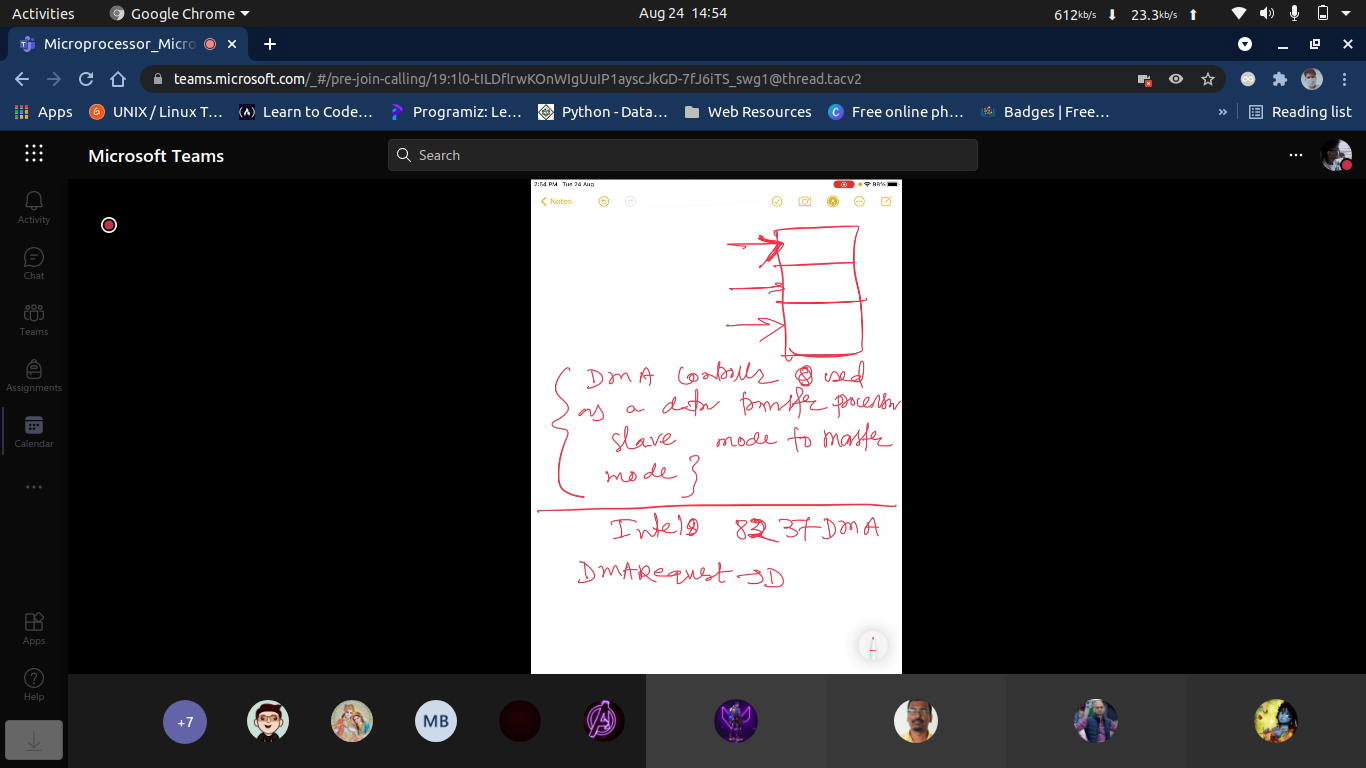 Activities
Google Chrome
Aug 24 14:54
612kb/s
23.3kb/s
Microprocessor_Micro
teams.microsoft.com/_#/pre-join-calling/19:1l0-tILDfIrwKOnWIgUuIP1ayscJkGD-7fJ6iTS_swg1@thread.tacv2
Apps
UNIX / Linux T…
Learn to Code…
Programiz: Le…
Python - Data…
Web Resources
Free online ph…
Badges | Free…
»
Reading list
Microsoft Teams
Search
Activity
Chat
Teams
Assignments
Calendar
Apps
Help
2:54 PM Tue 24 Aug
98%
Notes
DMA Controller used
as a data transfer processor
slave mode to master
mode }
Intel 8237-DMA
DMA Request → D
+7
MB